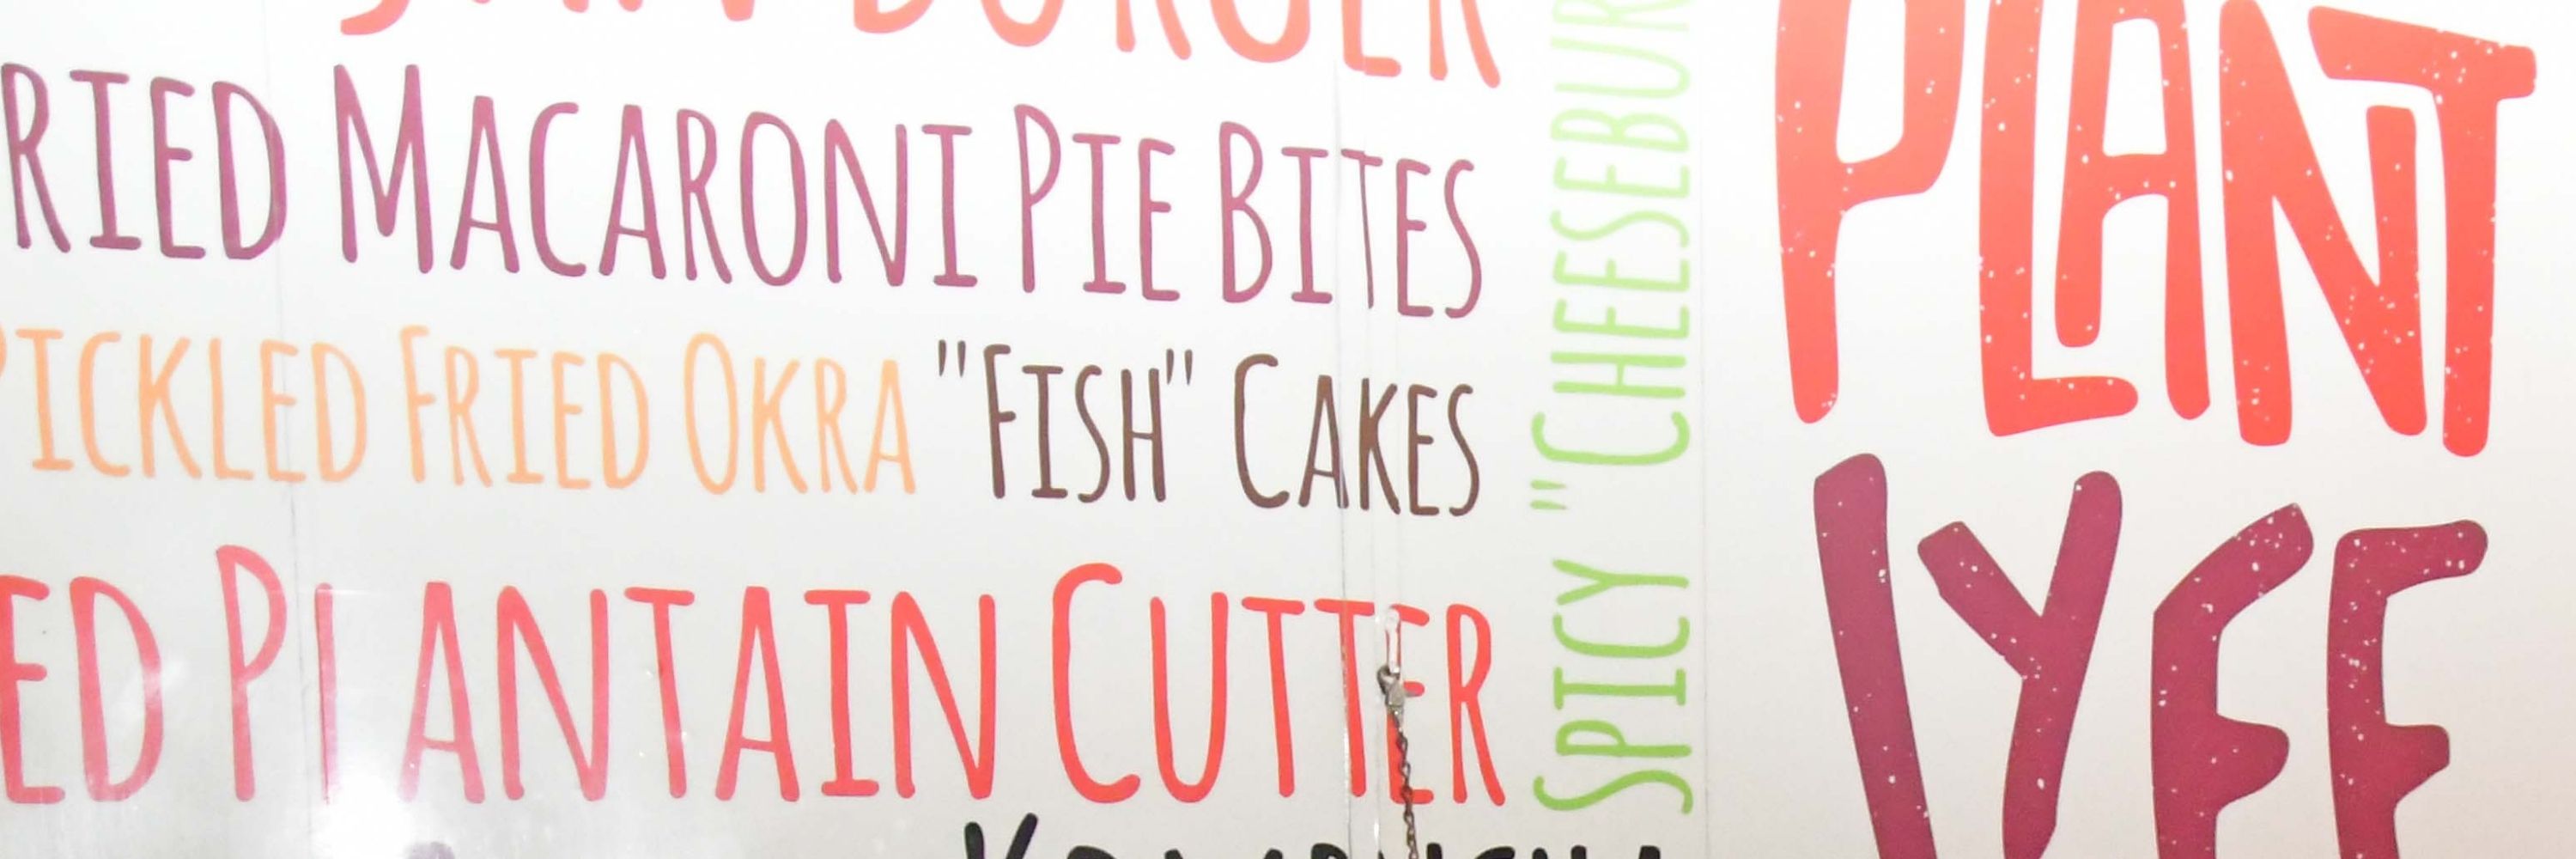 BURGER
RIED MACARONI PIE BITES
PICKLED FRIED OKRA "FISH" CAKES
ED PLANTAIN CUTTER
KOMBUCHA
SPICY "CHEESEBUR
PLANT
LYFE